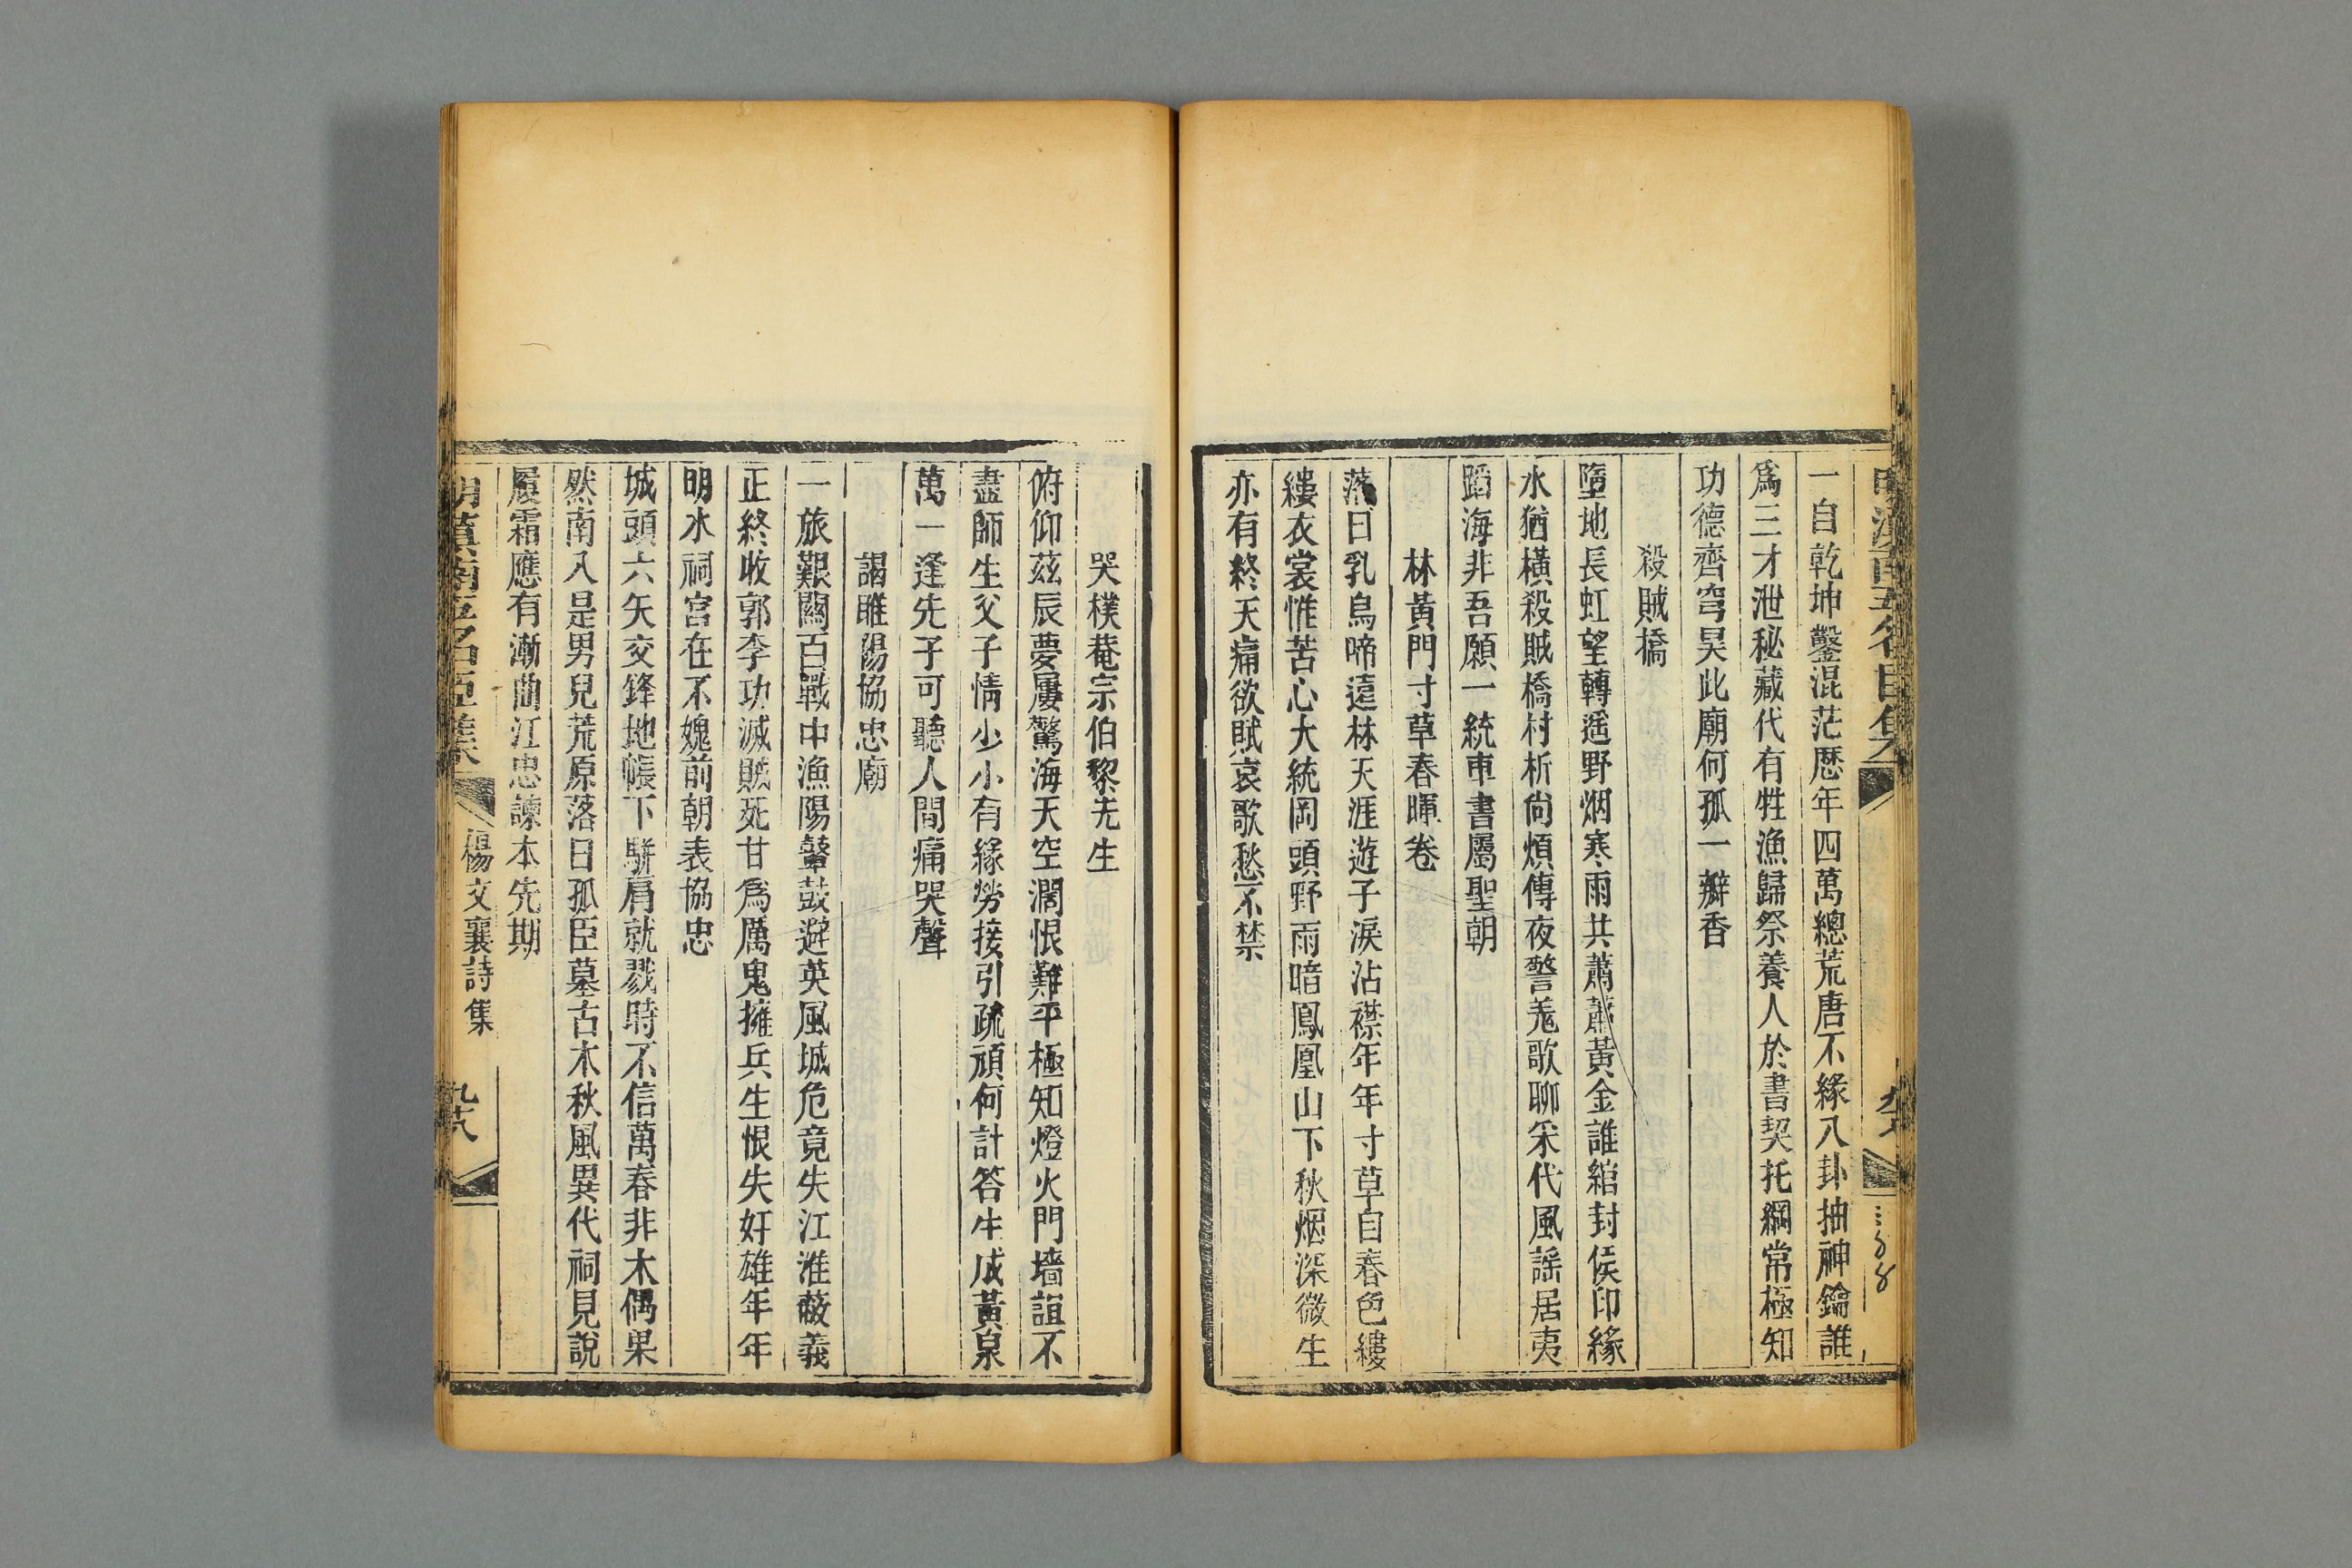 一自乾坤鑿混茫歷年四萬總荒唐不緣八卦抽神鑰誰
爲三才泄秘藏代有牲漁歸祭養人於書契托綱常極知
功德齊穹昊此廟何孤一瓣香
殺賊橋
墮地長虹望轉遥野烟寒雨共蕭蕭黃金誰綰封侯印緣
水猶橫殺賊橋村析尙煩傳夜警羌歌聊采代風謡居夷
蹈海非吾願一統車書屬聖朝
林黃門寸草春暉卷
落日乳烏啼遠林天涯遊子淚沾襟年年寸草自春色縷
縷衣裳惟苦心大統岡頭野雨暗鳳凰山下秋烟深微生
亦有終天痛欲賦哀歌愁不禁
哭樸菴宗伯黎先生
俯仰茲辰夢屢驚海天空濶恨難平極知燈火門墻誼不
盡師生父子情少小有緣勞接引疏頑何計答生成黃泉
萬一逢先子可聽人間痛哭聲
謁睢陽協忠廟
一旅艱關百戰中漁陽鼙鼓避英風城危竟失江淮蔽義
正終收郭李功滅賊死甘爲厲鬼擁兵生恨失奸雄年年
明水祠宮在不媿前朝表協忠
城頭六矢交鋒地帳下駢肩就戮時不信萬春非木偶果
然南八是男兒荒原落日孤臣墓古木秋風異代祠見說
履霜應有漸曲江忠諫本先期
明滇南五名臣集
楊文襄詩集